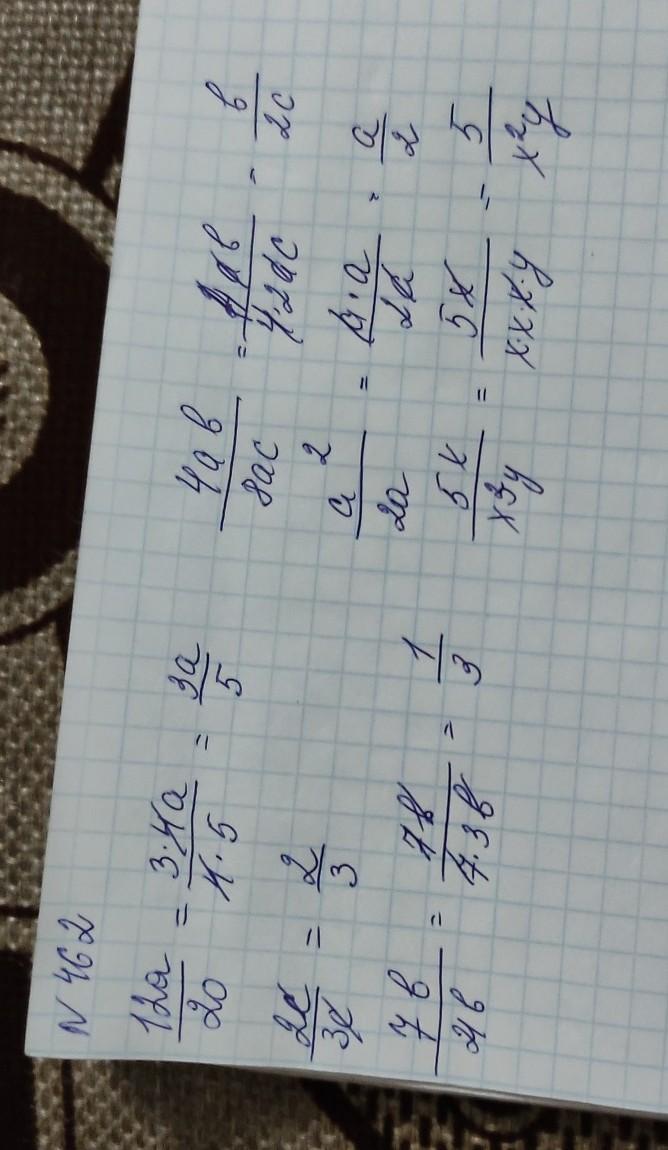 N 462
12a/20 = 3·4a/4·5 = 3a/5
2x/3x = 2/3
7b/21b = 7b/7·3b = 1/3
4ab/8ac = 4ab/4·2ac = b/2c
a²/2a = a·a/2a = a/2
5x/x³y = 5x/x·x·x·y = 5/x²y